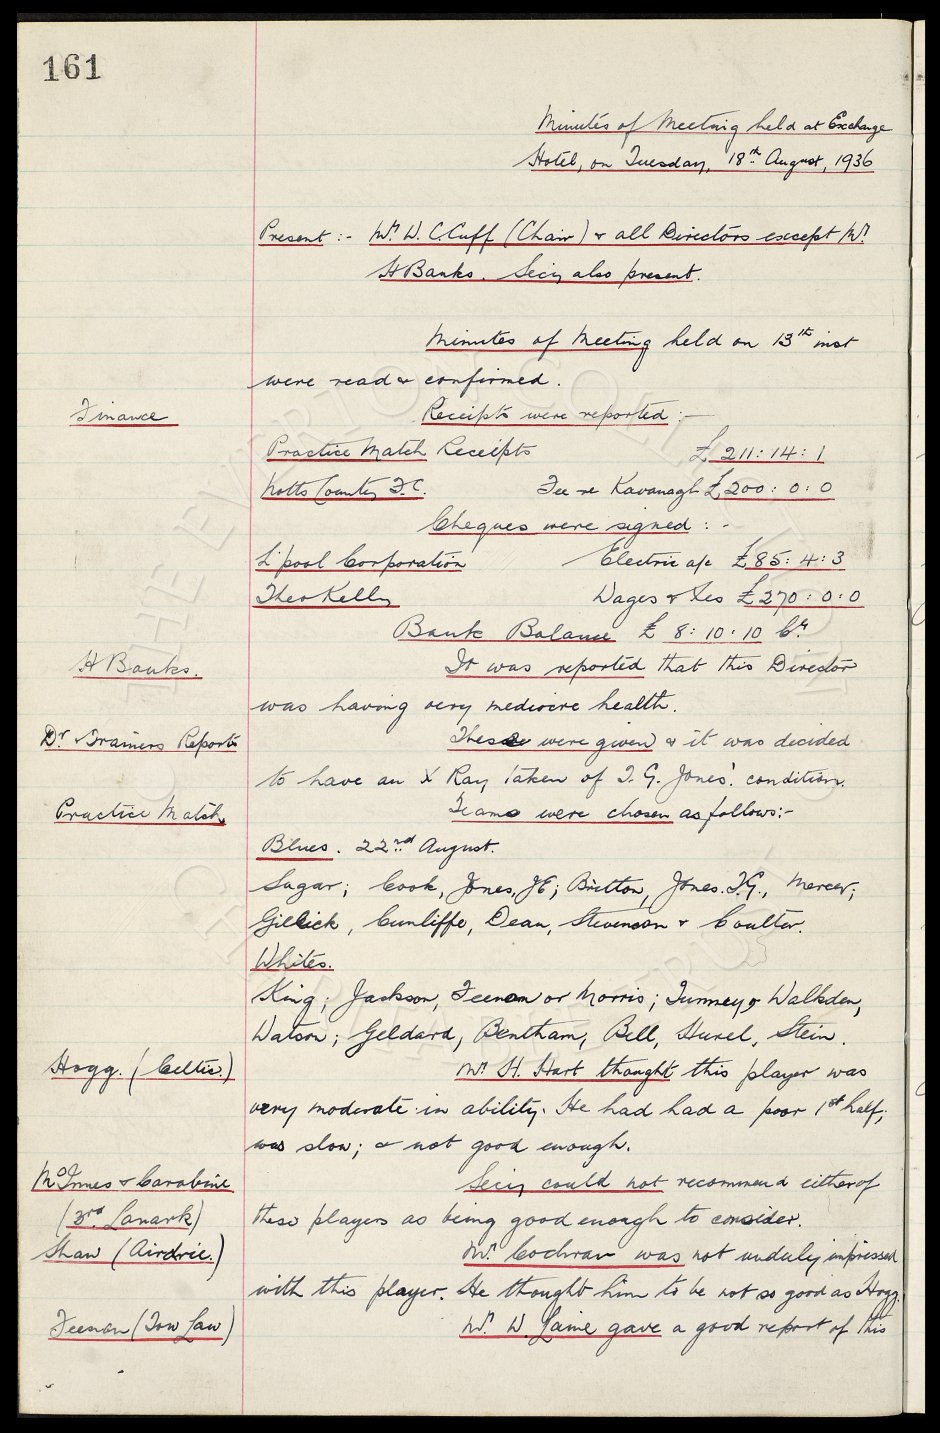 161
Minutes of Meeting held at Exchange
Hotel, on Tuesday, 18th August, 1936
Present :- Mr W. C. Cuff (Chair) & all Directors except Mr
H Banks. Secy also present.
Minutes of Meeting held on 13th inst
were read & confirmed.
Finance
Receipts were reported :-
Practice Match Receipts £ 211 : 14 : 1
Notts County F.C. Fee re Kavanagh £200 : 0 : 0
Cheques were signed : -
L'pool Corporation Electric a/c £85 : 4 : 3
Theo Kelly Wages & Xes £270 : 0 : 0
Bank Balance £ 8 : 10 : 10 Cr
H Banks.
It was reported that this Director
was having very mediocre health.
Dr & Trainers Reports
These were given & it was decided
to have an X Ray taken of T. G. Jones' condition.
Practice Match.
Teams were chosen as follows:-
Blues. 22nd August.
Sagar; Cook, Jones, JE; Britton, Jones. T.G., Mercer;
Gillick, Cunliffe, Dean, Stevenson & Coulter.
Whites.
King; Jackson, Feenan or Morris; Tunney, Walkden,
Watson; Geldard, Bentham, Bell, Hurel, Stein.
Hogg. (Celtic.)
Mr H. Hart thought this player was
very moderate in ability. He had had a poor 1st half;
was slow; & not good enough.
McInnes & Carabine
(3rd Lanark)
Secy could not recommend either of
these players as being good enough to consider.
Shaw (Airdrie.)
Mr Cochran was not unduly impressed
with this player. He thought him to be not so good as Hogg.
Feenan (Tow Law)
Mr. W. Laine gave a good report of this